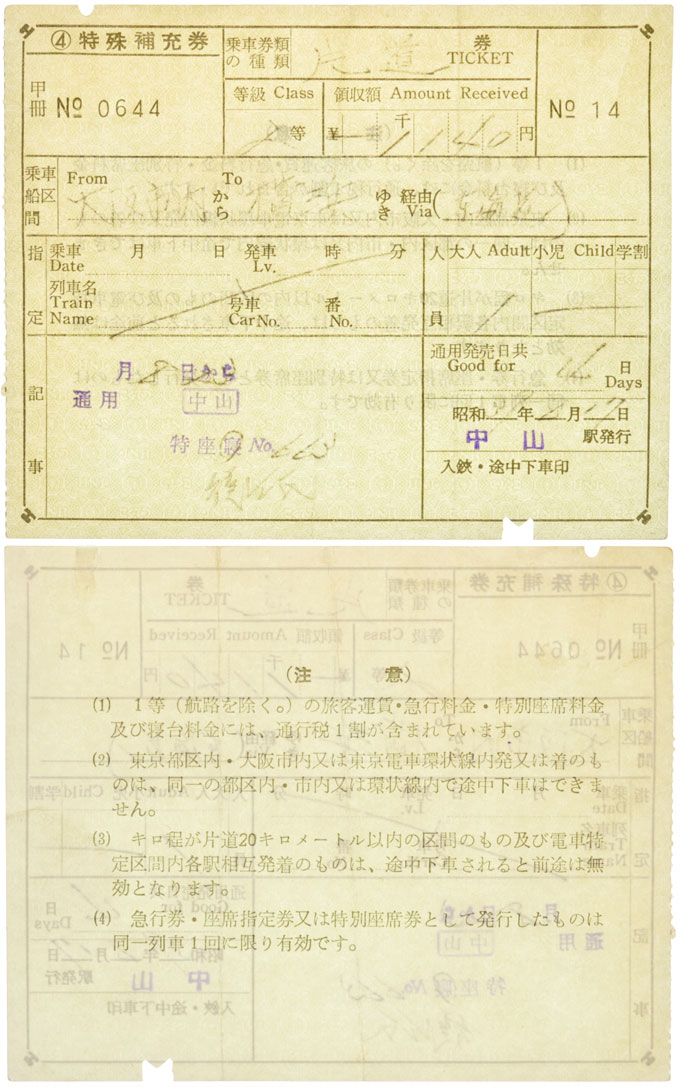 ④ 特殊補充券
甲冊 No 0644
乗車券類の種類 片道 券 TICKET
等級 Class 2 等
領収額 Amount Received
千
¥ 1140 円
No 14
乗車船区間
From 大阪市内 から
To ゆき
経由 Via (東海道)
指定
乗車 Date 月 日
発車 Lv. 時 分
列車名 Train Name
号車 Car No. 番 No.
人員
大人 Adult 小児 Child 学割
記事
月 8 日から
通用 中山
特座 No.
通用発売日共 Good for 日 Days
昭和 年 月 17 日
中山 駅発行
入鋏・途中下車印
(注 意)
(1) 1等(航路を除く。)の旅客運賃・急行料金・特別座席料金
及び寝台料金には、通行税1割が含まれています。
(2) 東京都区内・大阪市内又は東京電車環状線内発又は着のも
のは、同一の都区内・市内又は環状線内で途中下車はできま
せん。
(3) キロ程が片道20キロメートル以内の区間のもの及び電車特
定区間内各駅相互発着のものは、途中下車されると前途は無
効となります。
(4) 急行券・座席指定券又は特別座席券として発行したものは
同一列車1回に限り有効です。